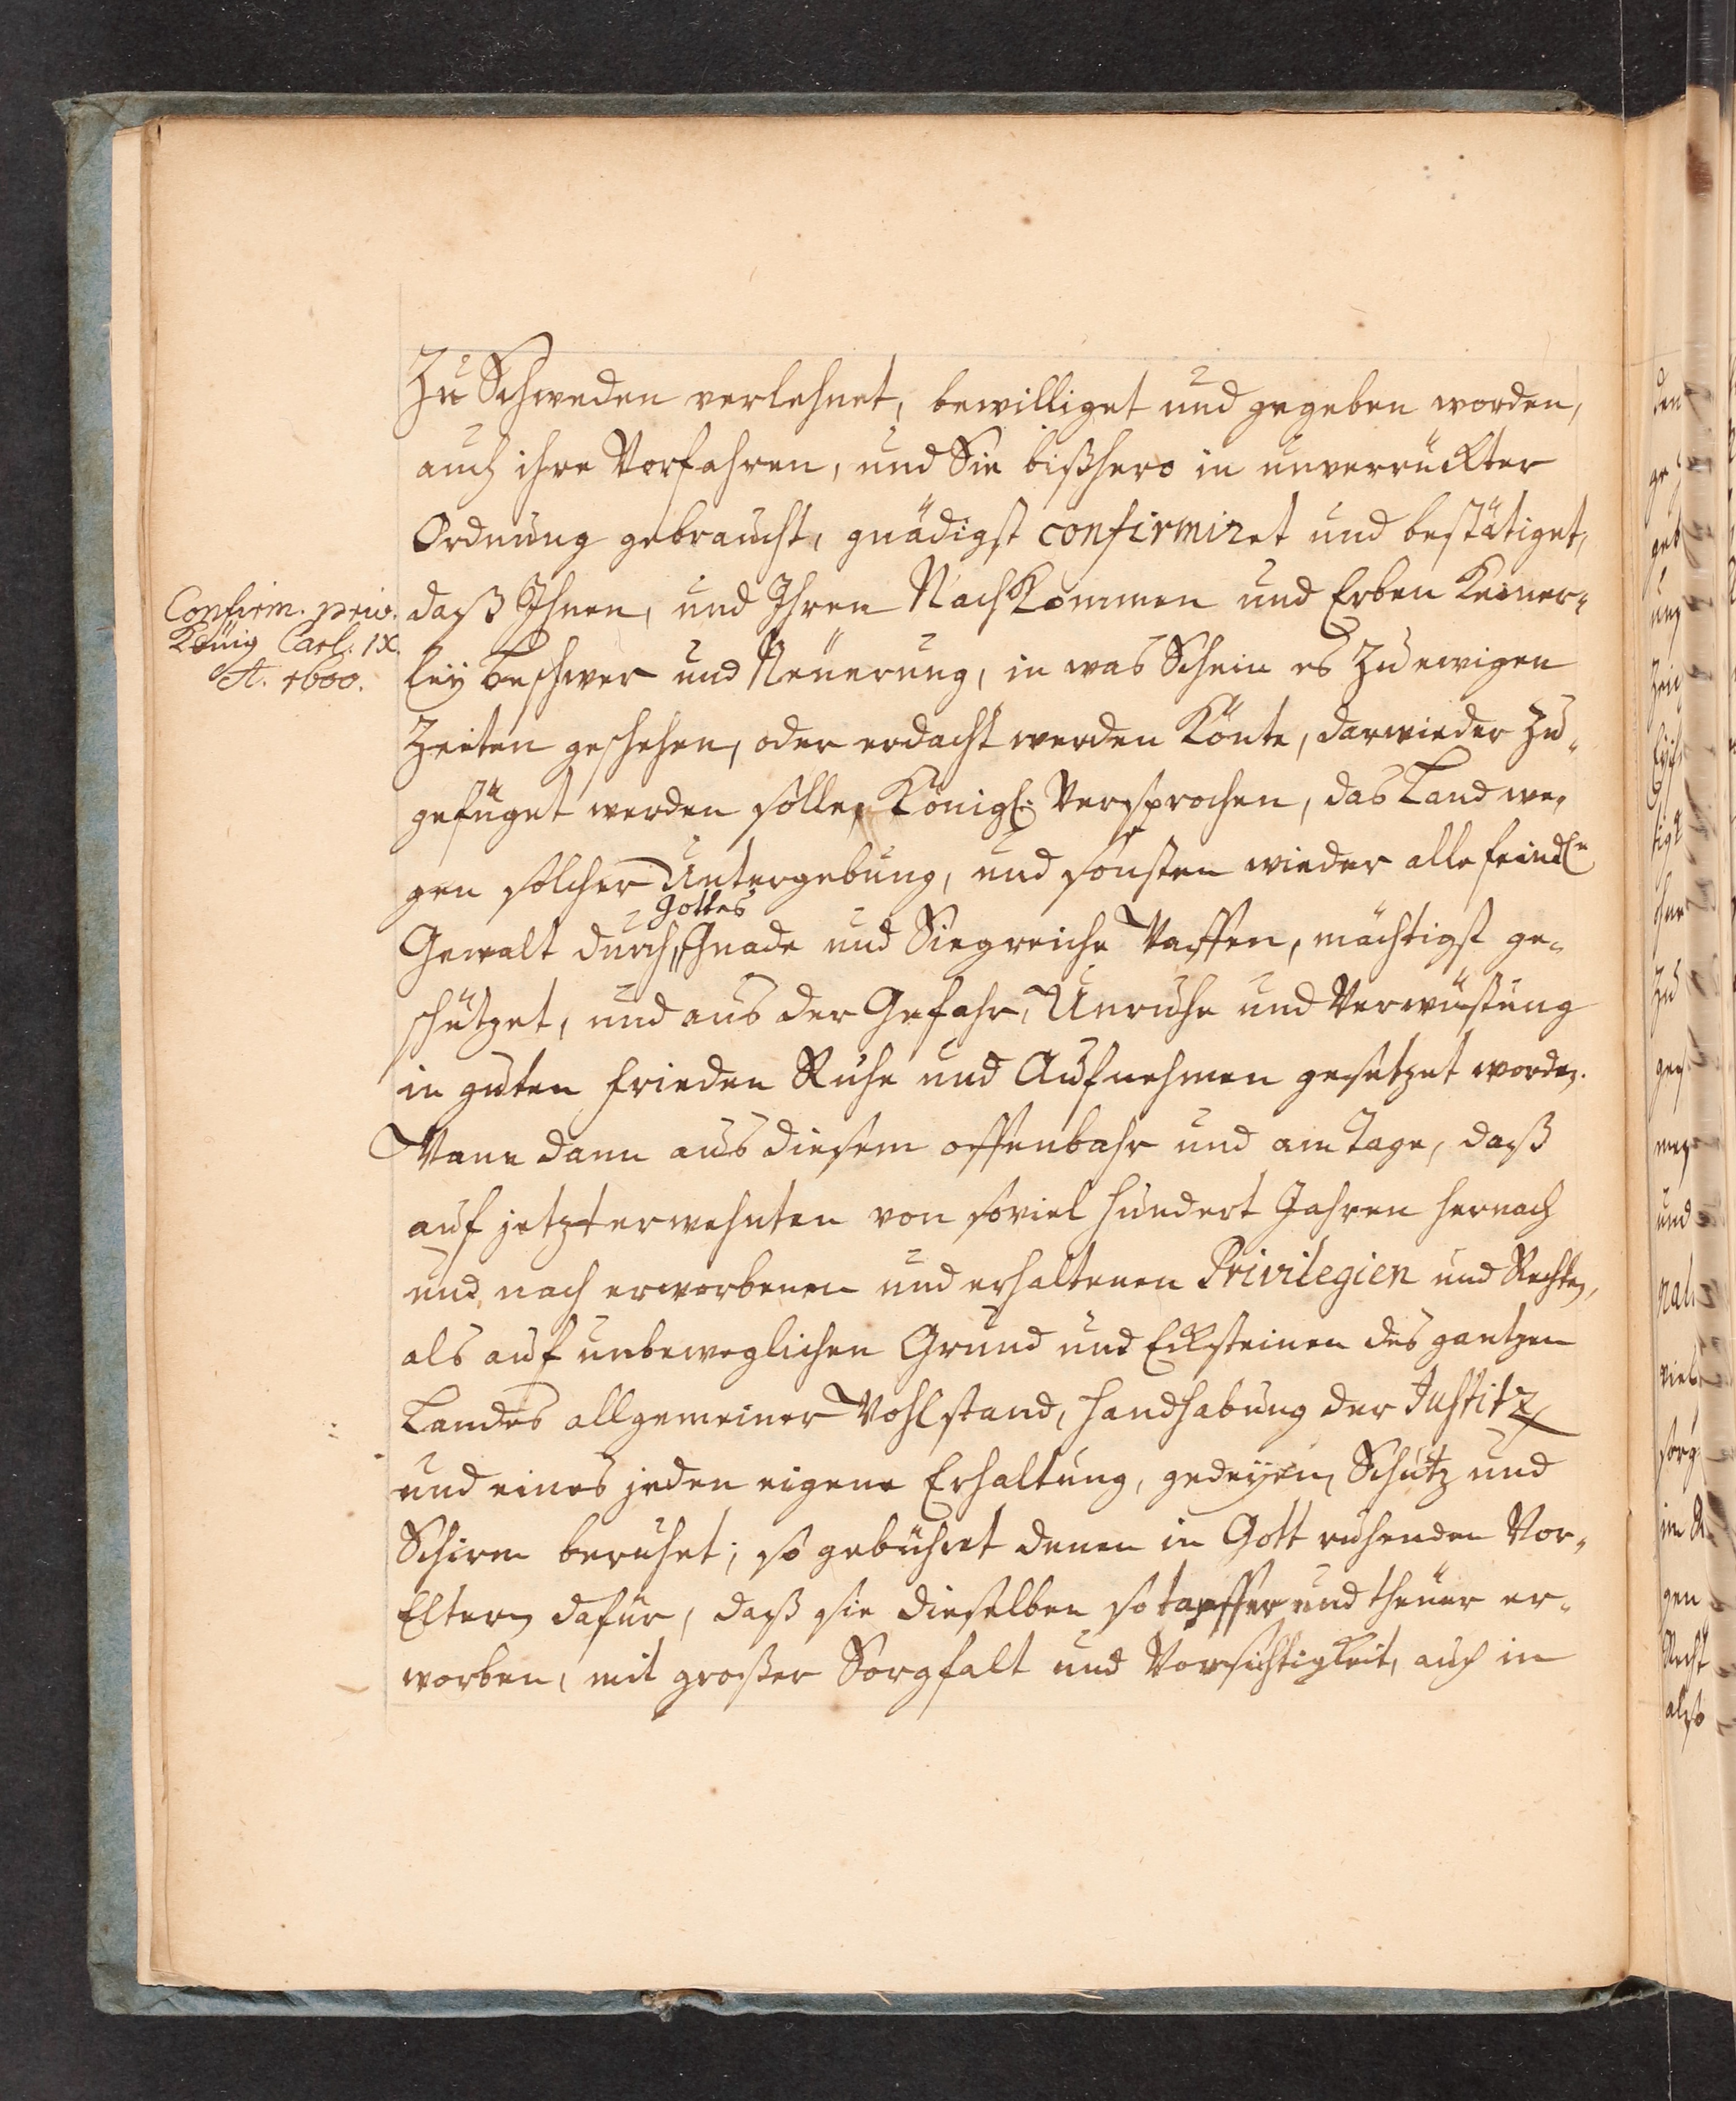 Zu Schweden verlehnet, bewilliget und gegeben worden,
auch ihre Vorfahren, und Sie bißhero in unverrückter
Ordnung gebraucht, gnädigst confirmiret und bestätiget,
Confirm. priv.
König Carl: IX.
A. 1600.
daß Ihnen, und Ihren Nachkommen und Erben Keiner-
ley Beschwer und Neuerung, in was Schein es zu ewigen
Zeiten geschehen, oder erdacht werden könte, darwieder zu-
gefüget werden solle, Königl: Versprochen, das Land we-
gen solcher Untergebung, und sonsten wieder alle feindl.
Gewalt durch Gottes Gnade und Siegreiche Waffen, mächtigst ge-
schützet, und aus der Gefahr, Unruhe und Verwüstung
in guten frieden Ruhe und Aufnehmen gesetzet worden.
Wann dann aus diesem offenbahr und am Tage, daß
auf jetzt erwehnten von soviel hundert Jahren hernach
und nach erworbenen und erhaltenen Privilegien und Rechten,
als auf unbeweglichen Grund und Ecksteinen des gantzen
Landes allgemeiner Wohlstand, handhabung der Justitz
und eines jeden eigene Erhaltung, gedeyen, Schutz und
Schirm beruhet; so gebühret denen in Gott ruhenden Vor-
Eltern dafür, daß sie dieselben so tapffer und theuer er-
worben, mit großer Sorgfalt und Vorsichtigkeit, auch in